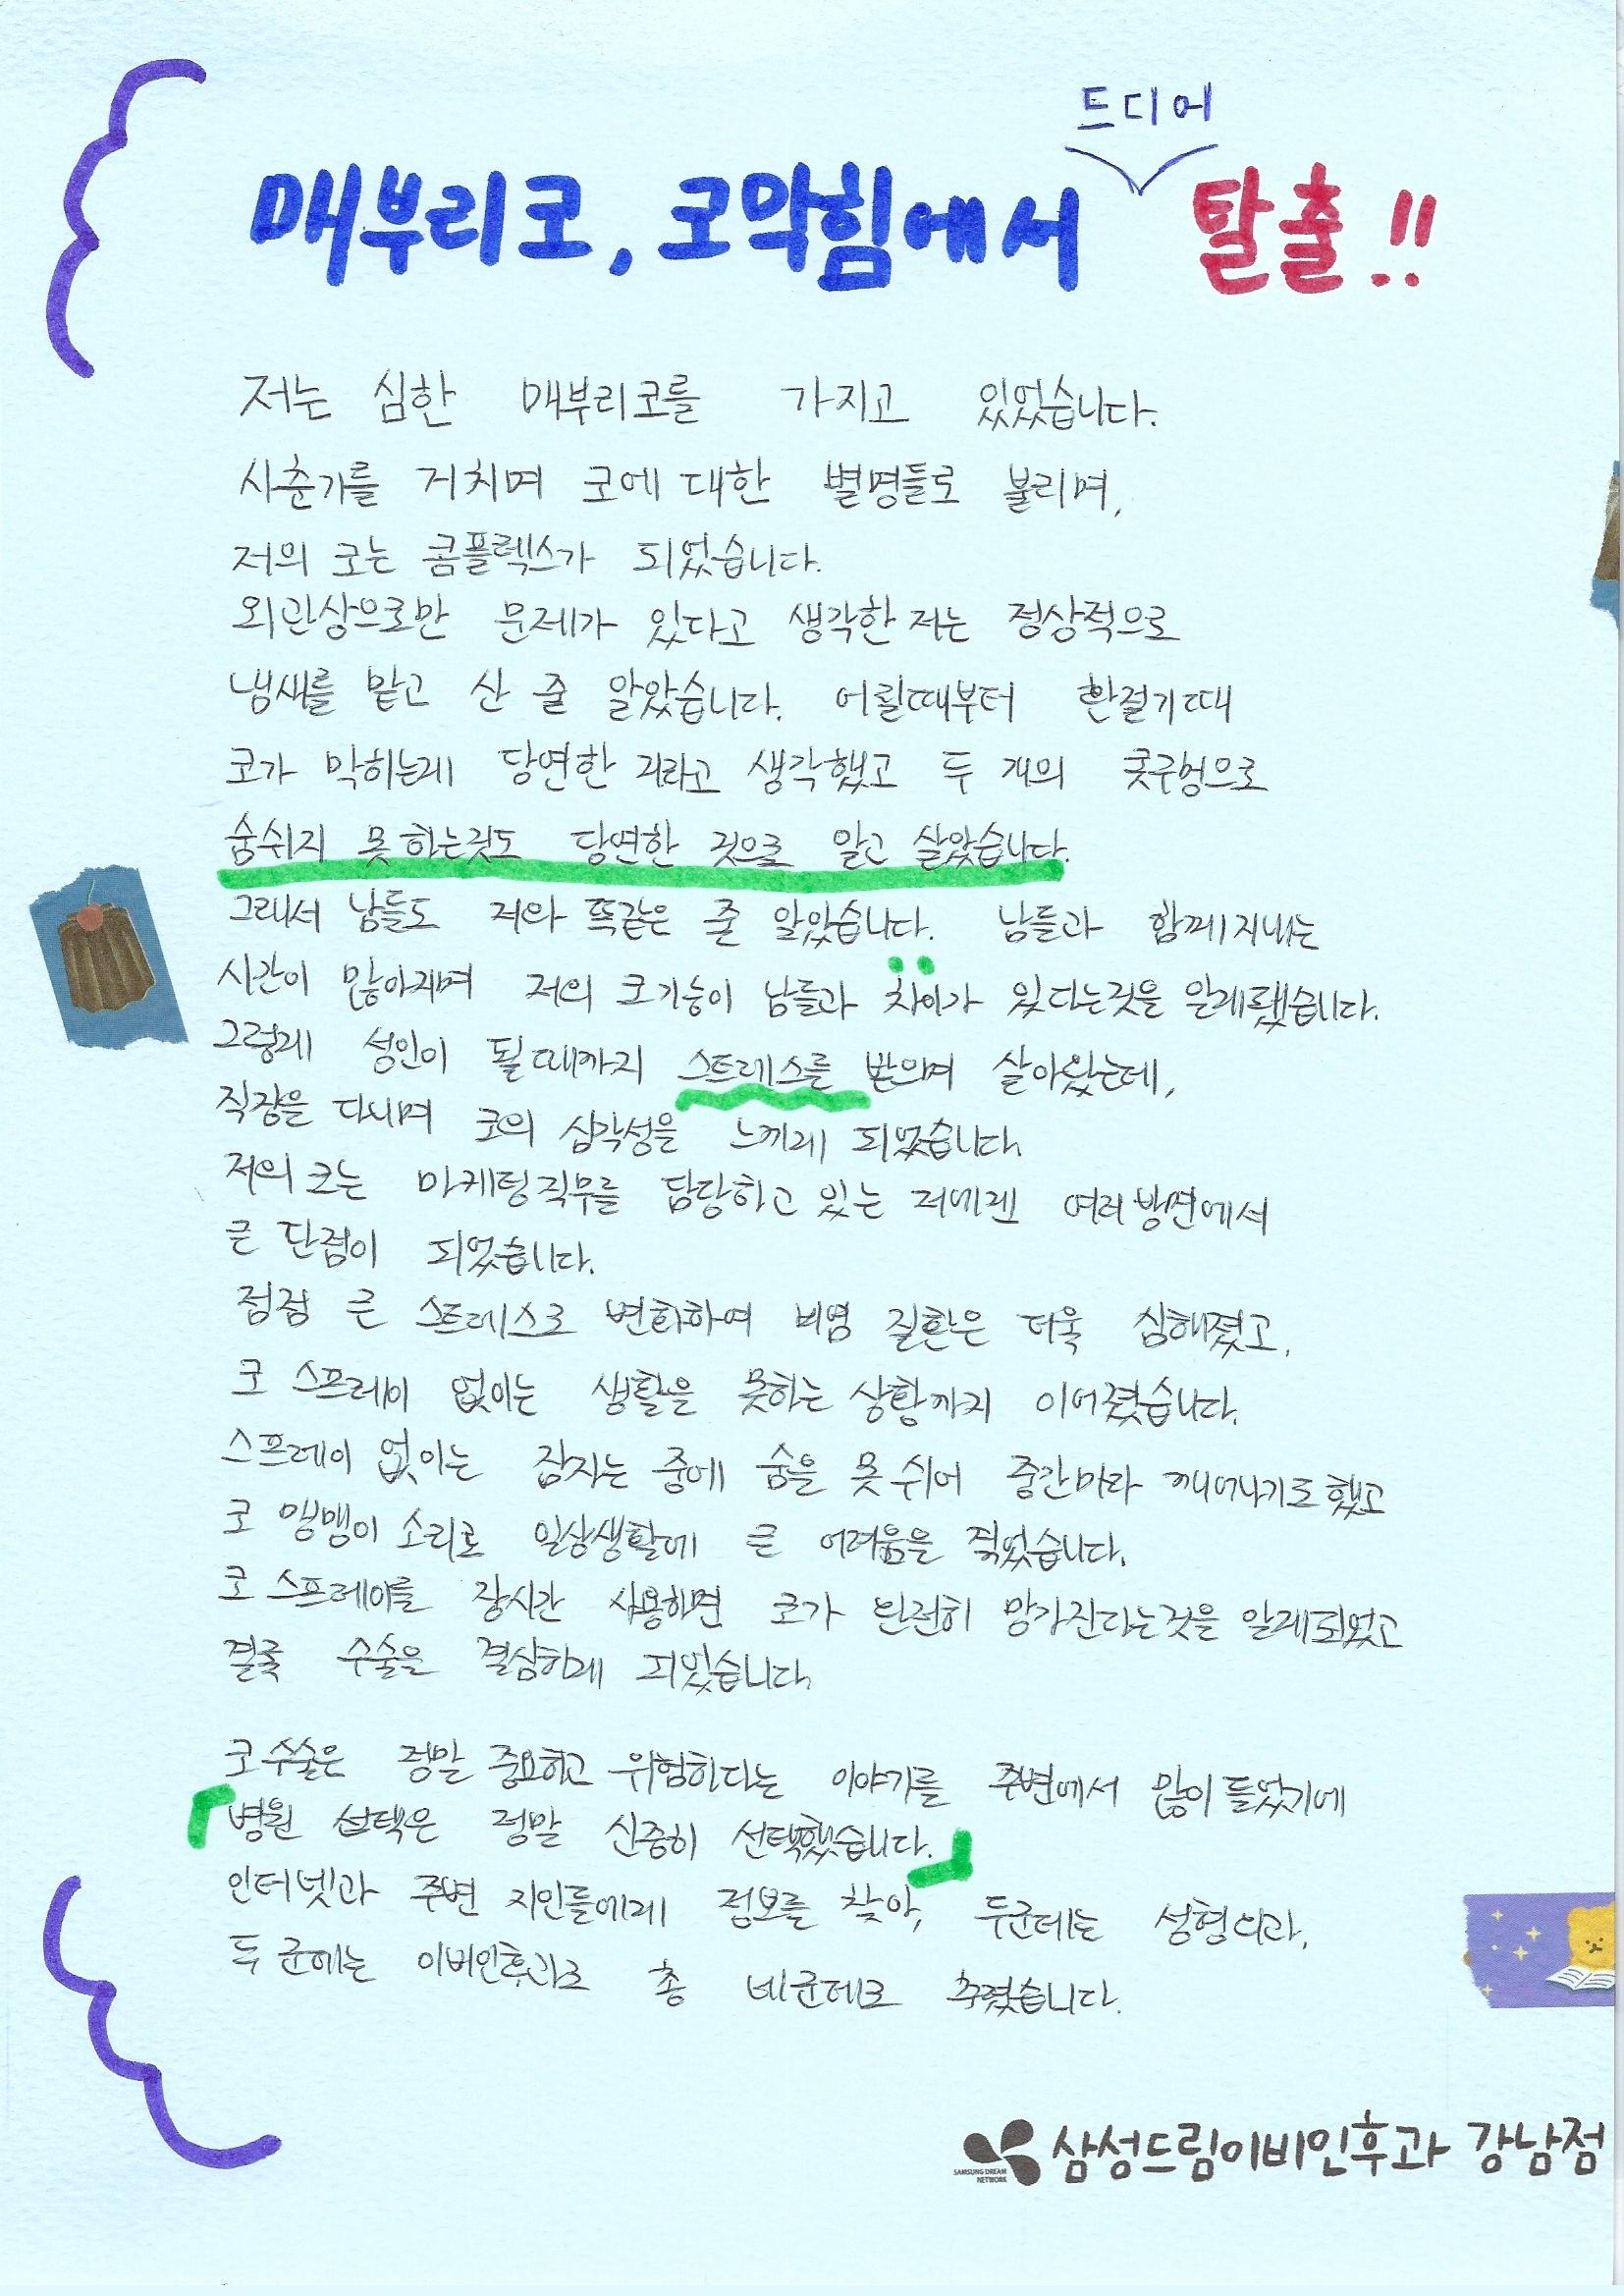 드디어
매부리코, 코막힘에서 탈출!!
저는 심한 매부리코를 가지고 있었습니다.
사춘기를 거치며 코에 대한 별명들로 불리며,
저의 코는 콤플렉스가 되었습니다.
외관상으로만 문제가 있다고 생각한 저는 정상적으로
냄새를 맡고 산 줄 알았습니다. 어릴때부터 환절기때
코가 막히는게 당연한 거라고 생각했고 두 개의 콧구멍으로
숨쉬지 못하는것도 당연한 것으로 알고 살았습니다.
그래서 남들도 저와 똑같은 줄 알았습니다. 남들과 함께 지내는
시간이 많아지며 저의 코기능이 남들과 차이가 있다는것을 알게됐습니다.
그렇게 성인이 될때까지 스트레스를 받으며 살아왔는데,
직장을 다니며 코의 심각성을 느끼게 되었습니다.
저의 코는 마케팅직무를 담당하고 있는 저에겐 여러방면에서
큰 단점이 되었습니다.
점점 큰 스트레스로 변화하여 비염 질환은 더욱 심해졌고,
코 스프레이 없이는 생활을 못하는 상황까지 이어졌습니다.
스프레이 없이는 잠자는 중에 숨을 못 쉬어 중간마다 깨어나기도 했고
코 맹맹이 소리로 일상생활에 큰 어려움을 겪었습니다.
코 스프레이를 장시간 사용하면 코가 완전히 망가진다는것을 알게되었고
결국 수술을 결심하게 되었습니다.
코수술은 정말 중요하고 위험하다는 이야기를 주변에서 많이 들었기에
「병원 선택은 정말 신중히 선택했습니다.」
인터넷과 주변 지인들에게 정보를 찾아, 두군데는 성형외과,
두 군데는 이비인후과로 총 네군데로 추렸습니다.
SAMSUNG DREAM
NETWORK
삼성드림이비인후과 강남점